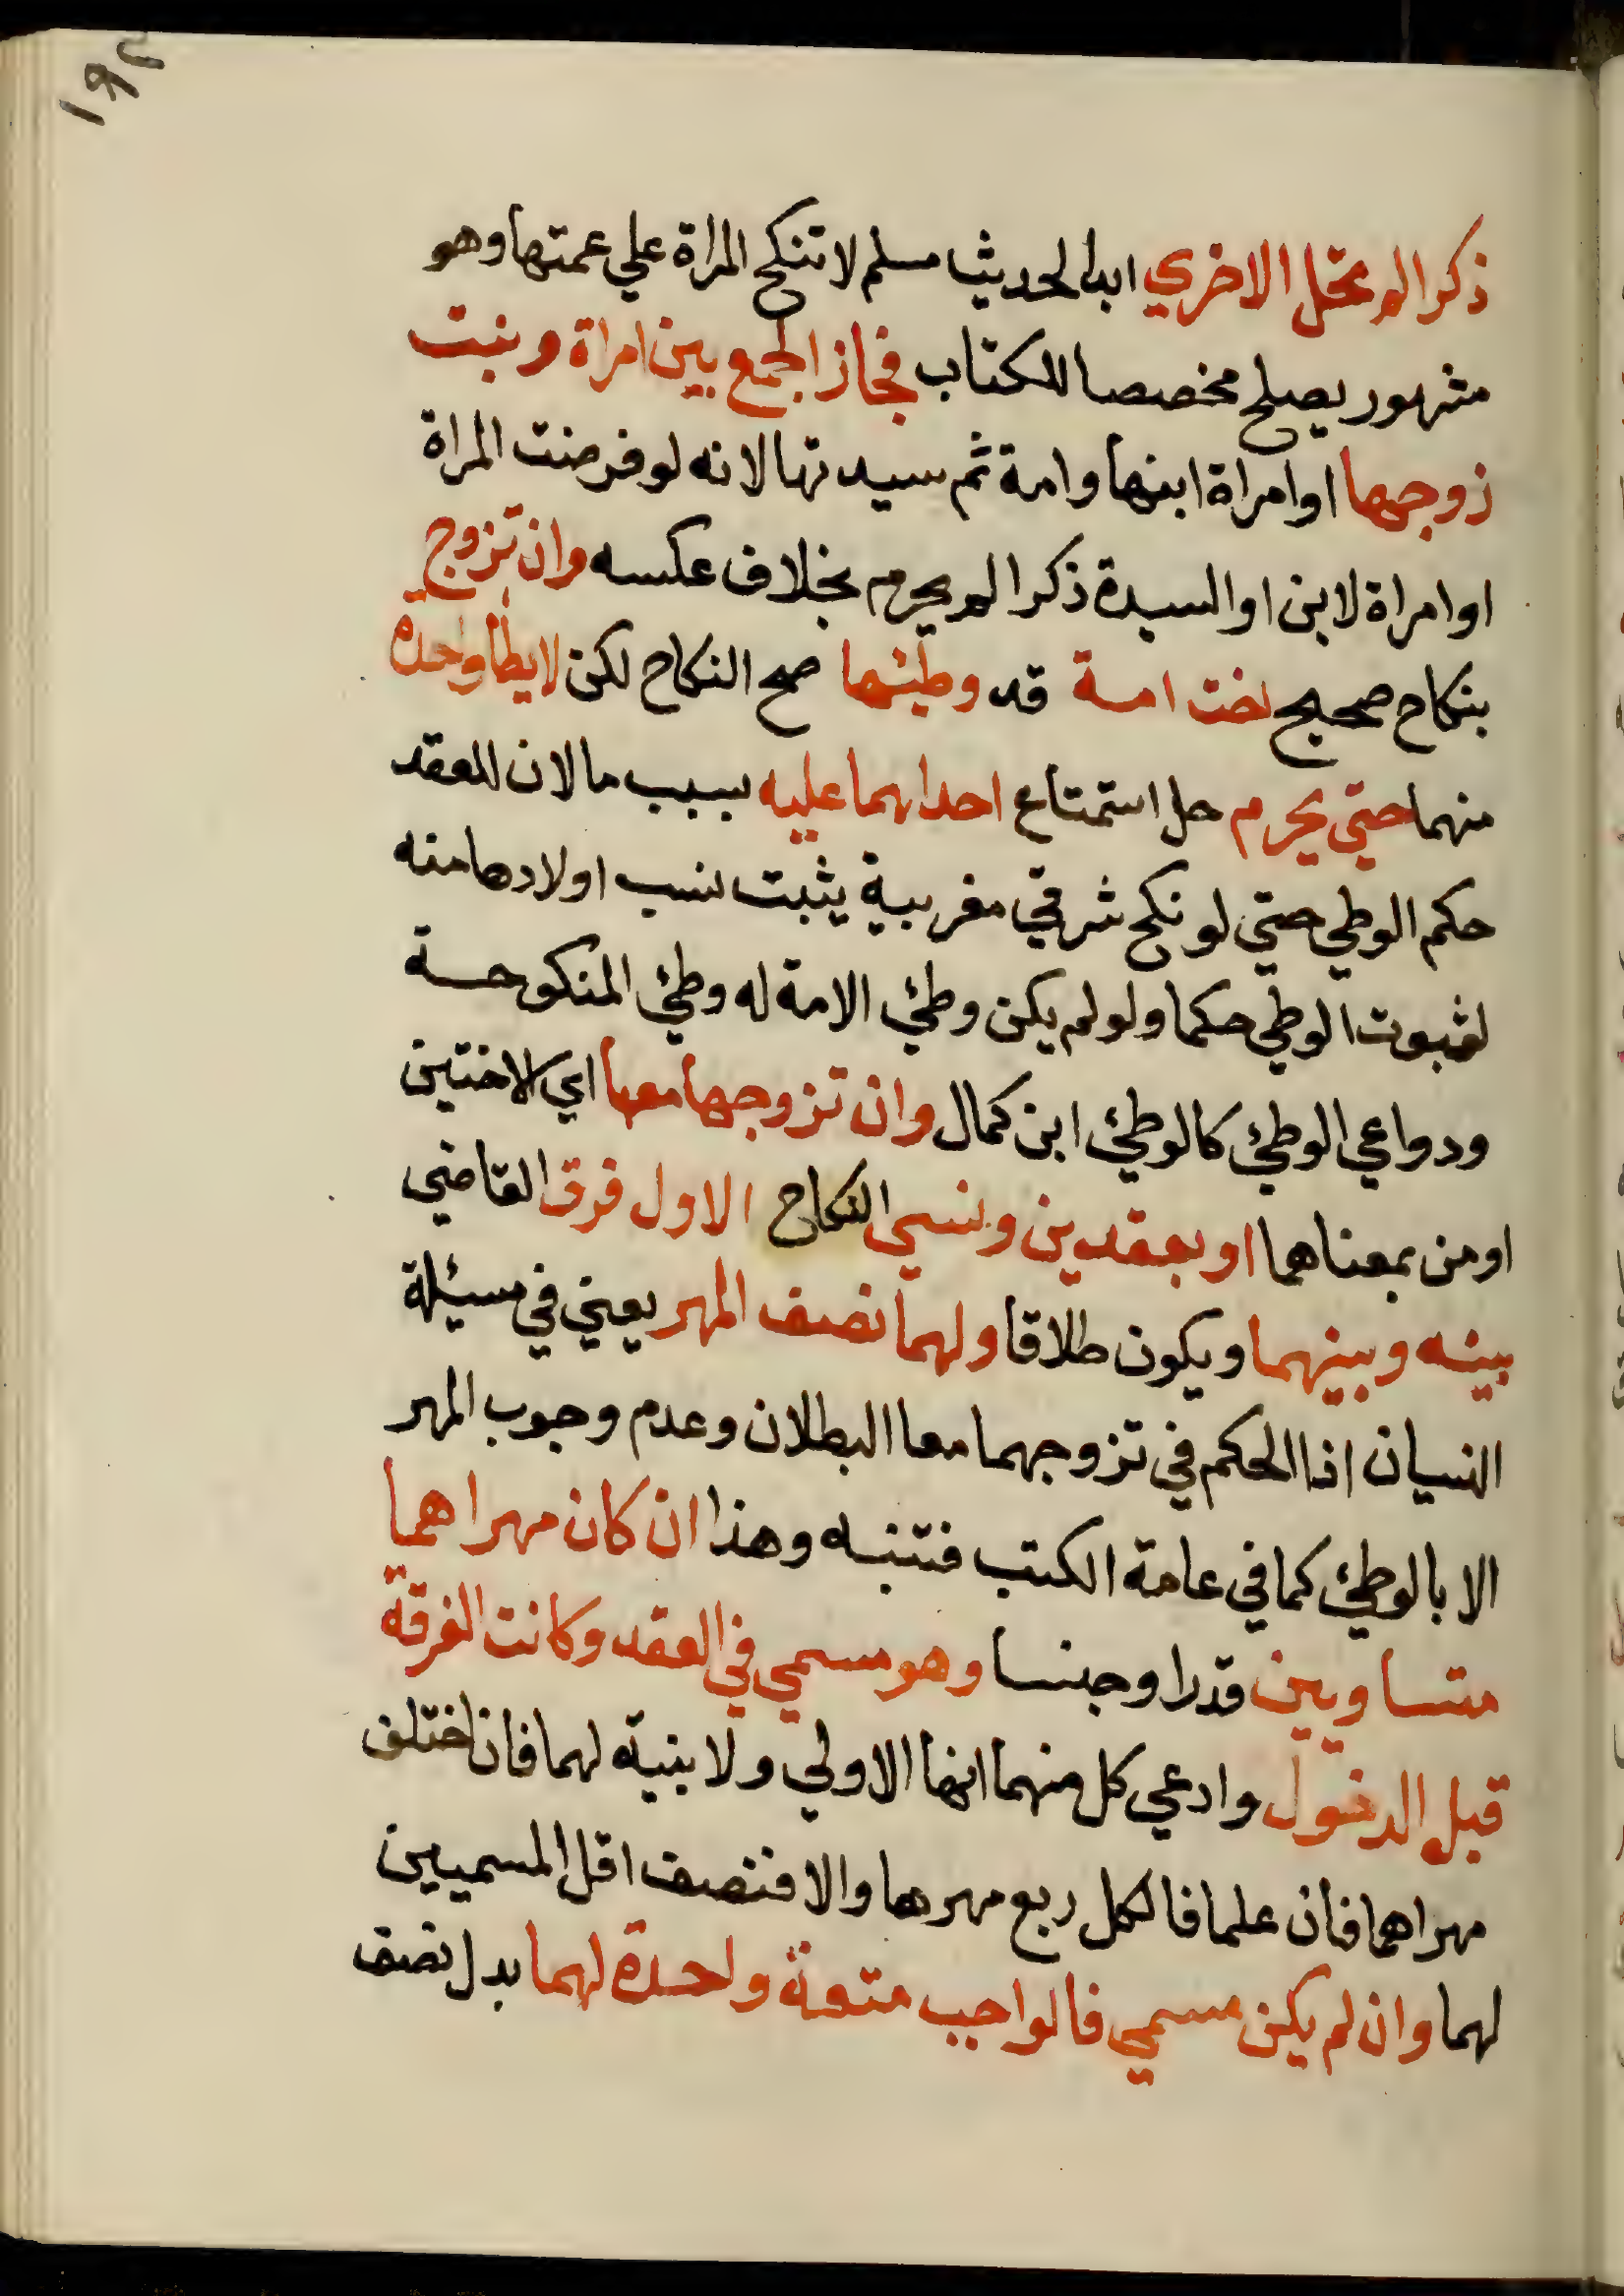 ١٩٢
ذكرا لم تحل الاخري ابدا لحديث مسلم لا تنكح المراة علي عمتها وهو
مشهور يصلح مخصصا للكتاب فجاز الجمع بين امراة وبنت
زوجها او امراة ابنها وامة ثم سيدتها لانه لو فرضت المراة
او امراة لابن او السيدة ذكرا لم يحرم بخلاف عكسه وان تزوج
بنكاح صحيح اخت امة قد وطئها صح النكاح لكن لا يطا واحدة
منهما حتي يحرم حل استمتاع احداهما عليه بسبب ما لان للعقد
حكم الوطي حتي لو نكح شرقي مغربية يثبت نسب اولادها منه
لثبوت الوطي حكما ولو لم يكن وطئ الامة له وطئ المنكوحة
ودواعي الوطئ كالوطئ ابن كمال وان تزوجها معا اي الاختين
او من بمعناهما او بعقدين ونسي النكاح الاول فرق القاضي
بينه وبينهما ويكون طلاقا ولهما نصف المهر يعني في مسئلة
النسيان اذا الحكم في تزوجهما معا البطلان وعدم وجوب المهر
الا بالوطئ كما في عامة الكتب فتنبه وهذا ان كان مهراهما
متساويين قدرا وجنسا وهو مسمي في العقد وكانت الفرقة
قبل الدخول وادعي كل منهما انها الاولي ولا بنية لهما فان اختلف
مهراهما فان علما فالكل ربع مهرها والا فنصف اقل المسميين
لهما وان لم يكن مسمي فالواجب متعة واحدة لهما بدل نصف